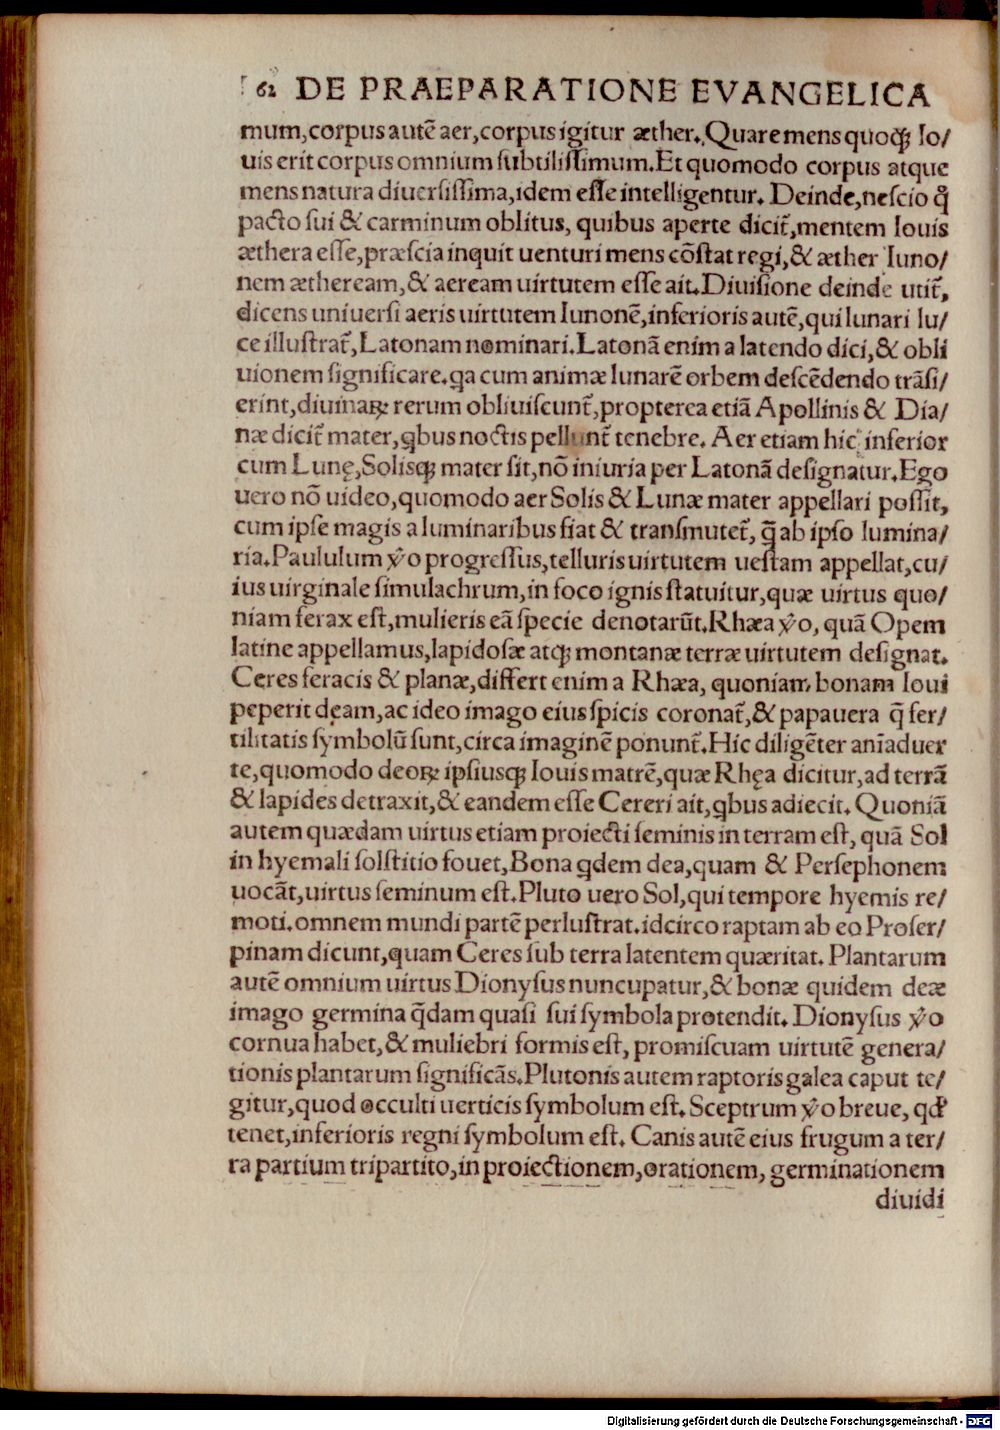 62 DE PRAEPARATIONE EVANGELICA
mum,corpus autē aer,corpus igitur æther. Quare mens quoqꝫ Io/
uis erit corpus omnium subtilissimum. Et quomodo corpus atque
mens natura diuersissima,idem esse intelligentur. Deinde,nescio q̊
pacto sui & carminum oblitus, quibus aperte dicit̃,mentem Iouis
æthera esse,præscia inquit uenturi mens cōstat regi,& æther Iuno/
nem ætheream,& aeream uirtutem esse ait. Diuisione deinde utit̃,
dicens uniuersi aeris uirtutem Iunonē,inferioris autē,qui lunari lu/
ce illustrat̃,Latonam nominari. Latonā enim a latendo dici,& obli
uionem significare. ꝗa cum animæ lunarē orbem descēdendo trāsi/
erint,diuinaꝝ rerum obliuiscunt̃,propterea etiā Apollinis & Dia/
næ dicit̃ mater,ꝗbus noctis pellunt̃ tenebre. Aer etiam hic inferior
cum Lunę,Solisqꝫ mater sit,nō iniuria per Latonā designatur. Ego
uero nō uideo,quomodo aer Solis & Lunæ mater appellari possit,
cum ipse magis a luminaribus fiat & transmutet̃, q̄ ab ipso lumina/
ria. Paululum ỽo progressus,telluris uirtutem uestam appellat,cu/
ius uirginale simulachrum,in foco ignis statuitur,quæ uirtus quo/
niam ferax est,mulieris eā specie denotarūt. Rhæa ỽo, quā Opem
latine appellamus,lapidosæ atqꝫ montanæ terræ uirtutem designat.
Ceres feracis & planæ,differt enim a Rhæa, quoniam bonam Ioui
peperit deam,ac ideo imago eius spicis coronat̃,& papauera q̄ fer/
tilitatis symbolū sunt,circa imaginē ponunt̃. Hic diligēter aniaduer
te,quomodo deoꝝ ipsiusqꝫ Iouis matrē,quæ Rhęa dicitur,ad terrā
& lapides detraxit,& eandem esse Cereri ait,ꝗbus adiecit. Quoniā
autem quædam uirtus etiam proiecti seminis in terram est, quā Sol
in hyemali solstitio fouet,Bona ꝗdem dea,quam & Persephonem
uocāt,uirtus seminum est. Pluto uero Sol,qui tempore hyemis re/
moti.omnem mundi partē perlustrat.idcirco raptam ab eo Proser/
pinam dicunt,quam Ceres sub terra latentem quæritat. Plantarum
autē omnium uirtus Dionysus nuncupatur,& bonæ quidem deæ
imago germina q̄dam quasi sui symbola protendit. Dionysus ỽo
cornua habet,& muliebri formis est, promiscuam uirtutē genera/
tionis plantarum significās. Plutonis autem raptoris galea caput te/
gitur,quod occulti uerticis symbolum est. Sceptrum ỽo breue, qđ
tenet,inferioris regni symbolum est. Canis autē eius frugum a ter/
ra partium tripartito,in proiectionem,orationem, germinationem
diuidi
Digitalisierung gefördert durch die Deutsche Forschungsgemeinschaft - DFG